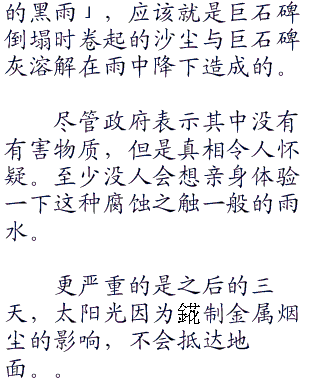 的黑雨」，应该就是巨石碑
倒塌时卷起的沙尘与巨石碑
灰溶解在雨中降下造成的。
尽管政府表示其中没有
有害物质，但是真相令人怀
疑。至少没人会想亲身体验
一下这种腐蚀之触一般的雨
水。
更严重的是之后的三
天，太阳光因为制金属烟
尘的影响，不会抵达地
面。。